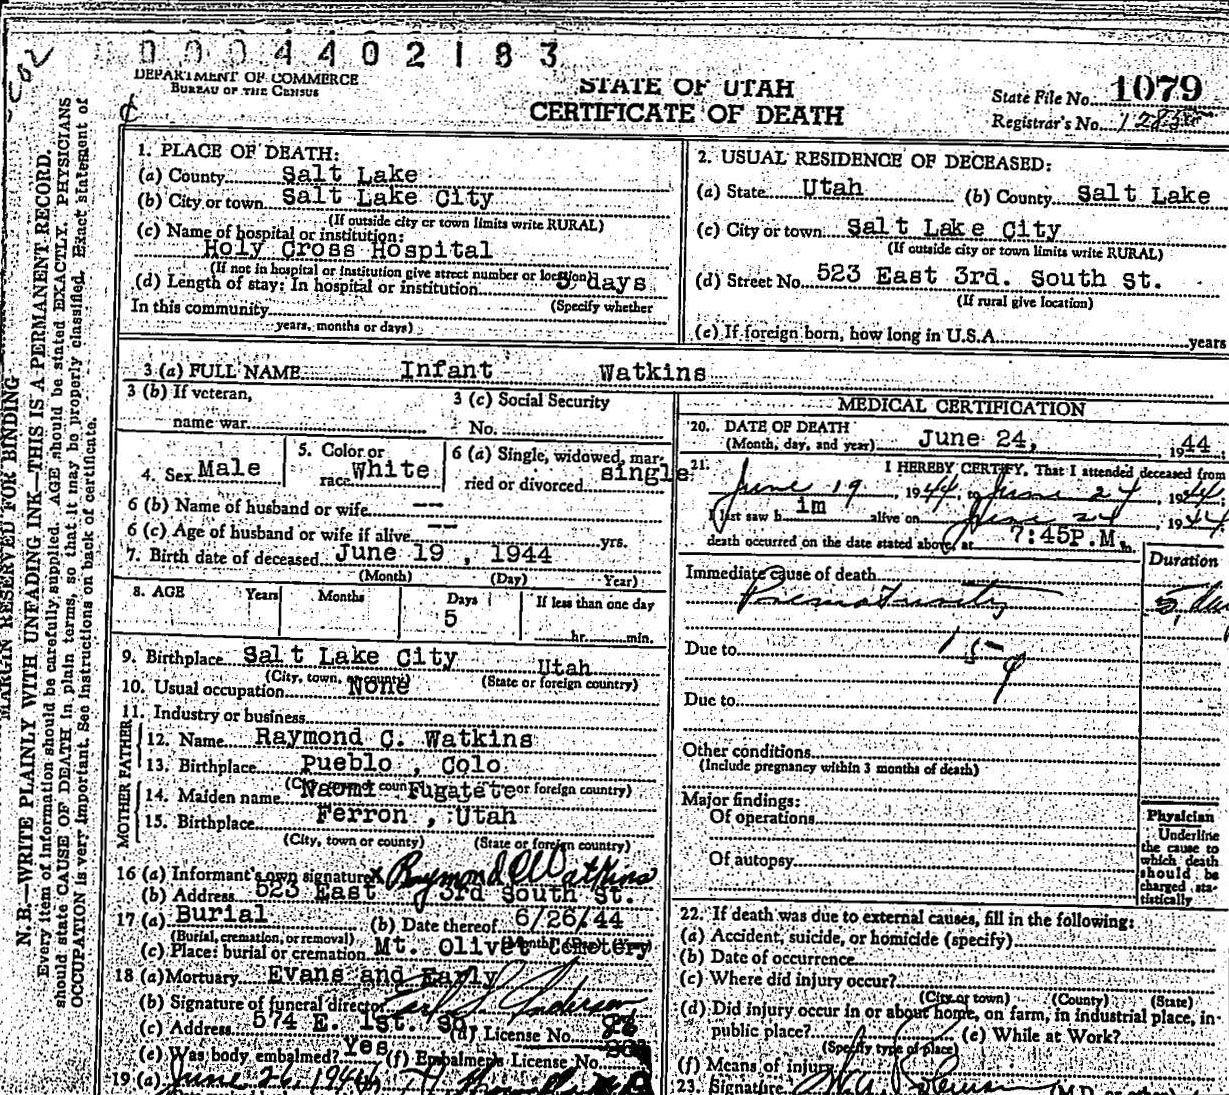 0 0 0 4 4 0 2 1 8 3
DEPARTMENT OF COMMERCE
BUREAU OF THE CENSUS
STATE OF UTAH
CERTIFICATE OF DEATH
State File No. 1079
Registrar's No.
MARGIN RESERVED FOR BINDING
N. B.—WRITE PLAINLY WITH UNFADING INK—THIS IS A PERMANENT RECORD.
Every item of information should be carefully supplied. AGE should be stated EXACTLY. PHYSICIANS
should state CAUSE OF DEATH in plain terms, so that it may be properly classified. Exact statement of
OCCUPATION is very important. See instructions on back of certificate.
1. PLACE OF DEATH:
(a) County Salt Lake
(b) City or town Salt Lake City
(If outside city or town limits write RURAL)
(c) Name of hospital or institution:
Holy Cross Hospital
(If not in hospital or institution give street number or location)
(d) Length of stay: In hospital or institution 5 days
(Specify whether
In this community
years, months or days)
2. USUAL RESIDENCE OF DECEASED:
(a) State Utah (b) County Salt Lake
(c) City or town Salt Lake City
(If outside city or town limits write RURAL)
(d) Street No. 523 East 3rd. South St.
(If rural give location)
(e) If foreign born, how long in U.S.A. years
3 (a) FULL NAME Infant Watkins
3 (b) If veteran,
name war
3 (c) Social Security
No.
4. Sex Male
5. Color or
race White
6 (a) Single, widowed, mar-
ried or divorced single
6 (b) Name of husband or wife --
6 (c) Age of husband or wife if alive -- yrs.
7. Birth date of deceased June 19, 1944
(Month) (Day) Year)
8. AGE Years Months Days If less than one day
5 hr. min.
9. Birthplace Salt Lake City Utah
(City, town, or county) (State or foreign country)
10. Usual occupation None
11. Industry or business
FATHER
12. Name Raymond C. Watkins
13. Birthplace Pueblo, Colo
MOTHER
14. Maiden name Naomi Fugate
15. Birthplace Ferron, Utah
(City, town or county) (State or foreign country)
16 (a) Informant's own signature x Raymond C Watkins
(b) Address 523 East 3rd South St.
17 (a) Burial (b) Date thereof 6/26/44
(Burial, cremation, or removal) (Month) (Day) (Year)
(c) Place: burial or cremation Mt. Olivet Cemetery
18 (a) Mortuary Evans and Early
(b) Signature of funeral director Earl S. Anderson
(c) Address 574 E. 1st. So. (d) License No.
(e) Was body embalmed? Yes (f) Embalmer's License No.
19 (a) June 26, 1944
MEDICAL CERTIFICATION
20. DATE OF DEATH
(Month, day, and year) June 24, 1944
21. I HEREBY CERTIFY, That I attended deceased from
June 19, 1944, to June 24, 1944
I last saw him alive on June 24, 1944
death occurred on the date stated above, at 7:45P.M. m.
Duration
Immediate cause of death
Prematurity 5 day
Due to 159
Due to
Other conditions
(Include pregnancy within 3 months of death)
Major findings:
Of operations
Of autopsy
Physician
Underline
the cause to
which death
should be
charged sta-
tistically
22. If death was due to external causes, fill in the following:
(a) Accident, suicide, or homicide (specify)
(b) Date of occurrence
(c) Where did injury occur?
(City or town) (County) (State)
(d) Did injury occur in or about home, on farm, in industrial place, in
public place? (e) While at Work?
(Specify type of place)
(f) Means of injury
23. Signature (M.D. or other)